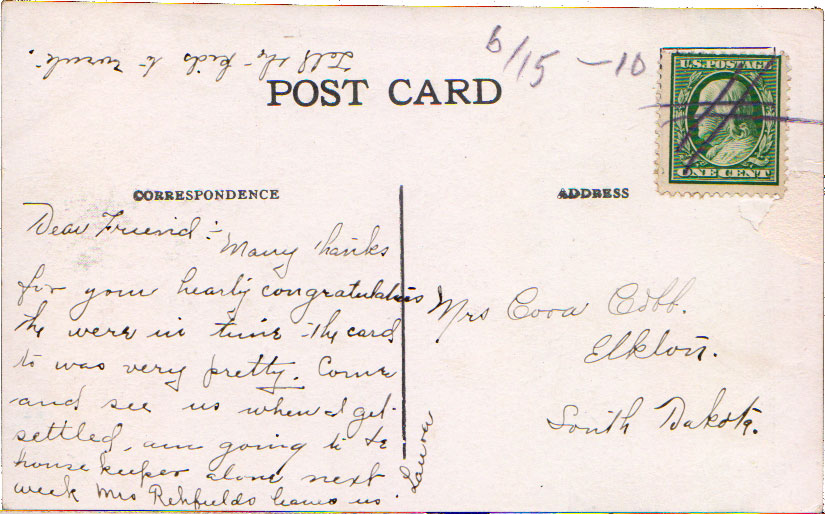 Tell the kids to write.
6/15 - 10
POST CARD
U.S. POSTAGE
ONE CENT
CORRESPONDENCE
ADDRESS
Dear Friend:- Many thanks
for your hearty congratulations
the were in time - the card
to was very pretty. Come
and see us when I get
settled, am going to be
house keeper alone next
week Mrs Rehfields leaves us.
Laura
Mrs Cora Cobb.
Elkton.
South Dakota.